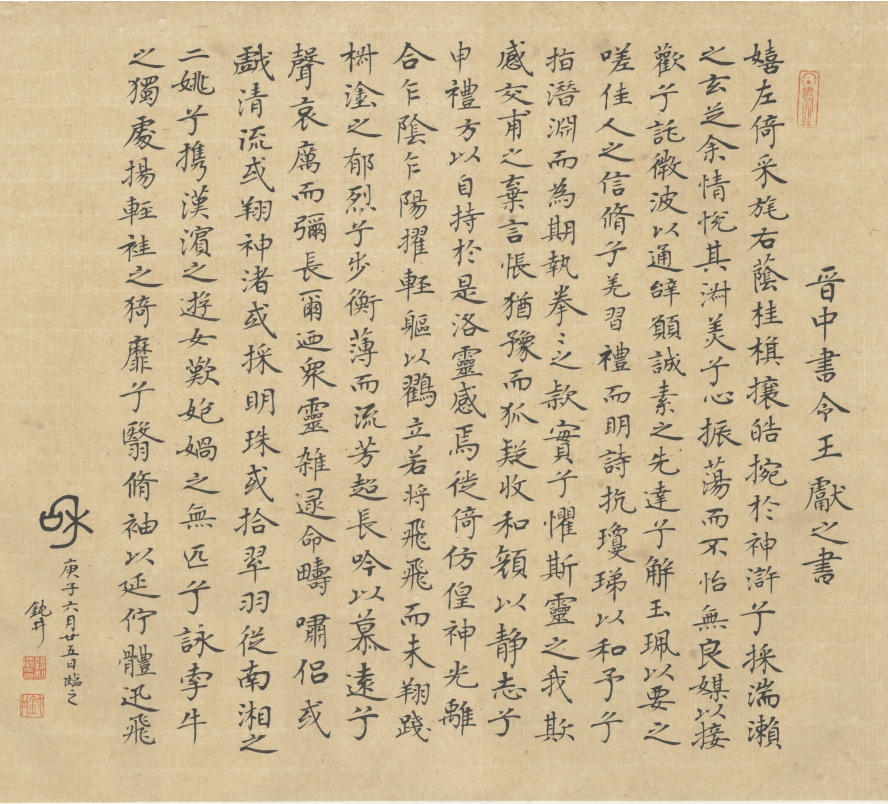 晉中書令王獻之書
嬉左倚采旄右蔭桂旗攘皓捥於神滸兮採湍瀨
之玄芝余情悅其淋美兮心振蕩而不怡無良媒以接
歡兮託微波以通辭願誠素之先達兮解玉珮以要之
嗟佳人之信脩兮羌習禮而明詩抗瓊珶以和予兮
指潛淵而為期執拳〻之款實兮懼斯靈之我欺
感交甫之棄言悵猶豫而狐疑收和顏以静志兮
申禮方以自持於是洛靈感焉徙倚仿偟神光離
合乍陰乍陽擢輕軀以鸖立若将飛飛而未翔踐
椒塗之郁烈兮步衡薄而流芳超長吟以慕遠兮
聲哀厲而彌長爾迺衆靈雜遝命疇嘯侣或
戲清流或翔神渚或採明珠或拾翠羽從南湘之
二姚兮携漢濱之遊女歎㚿媧之無匹兮詠牽牛
之獨處揚輕袿之猗靡兮翳脩袖以延佇體迅飛
庚子六月廿五日臨之
鈍井